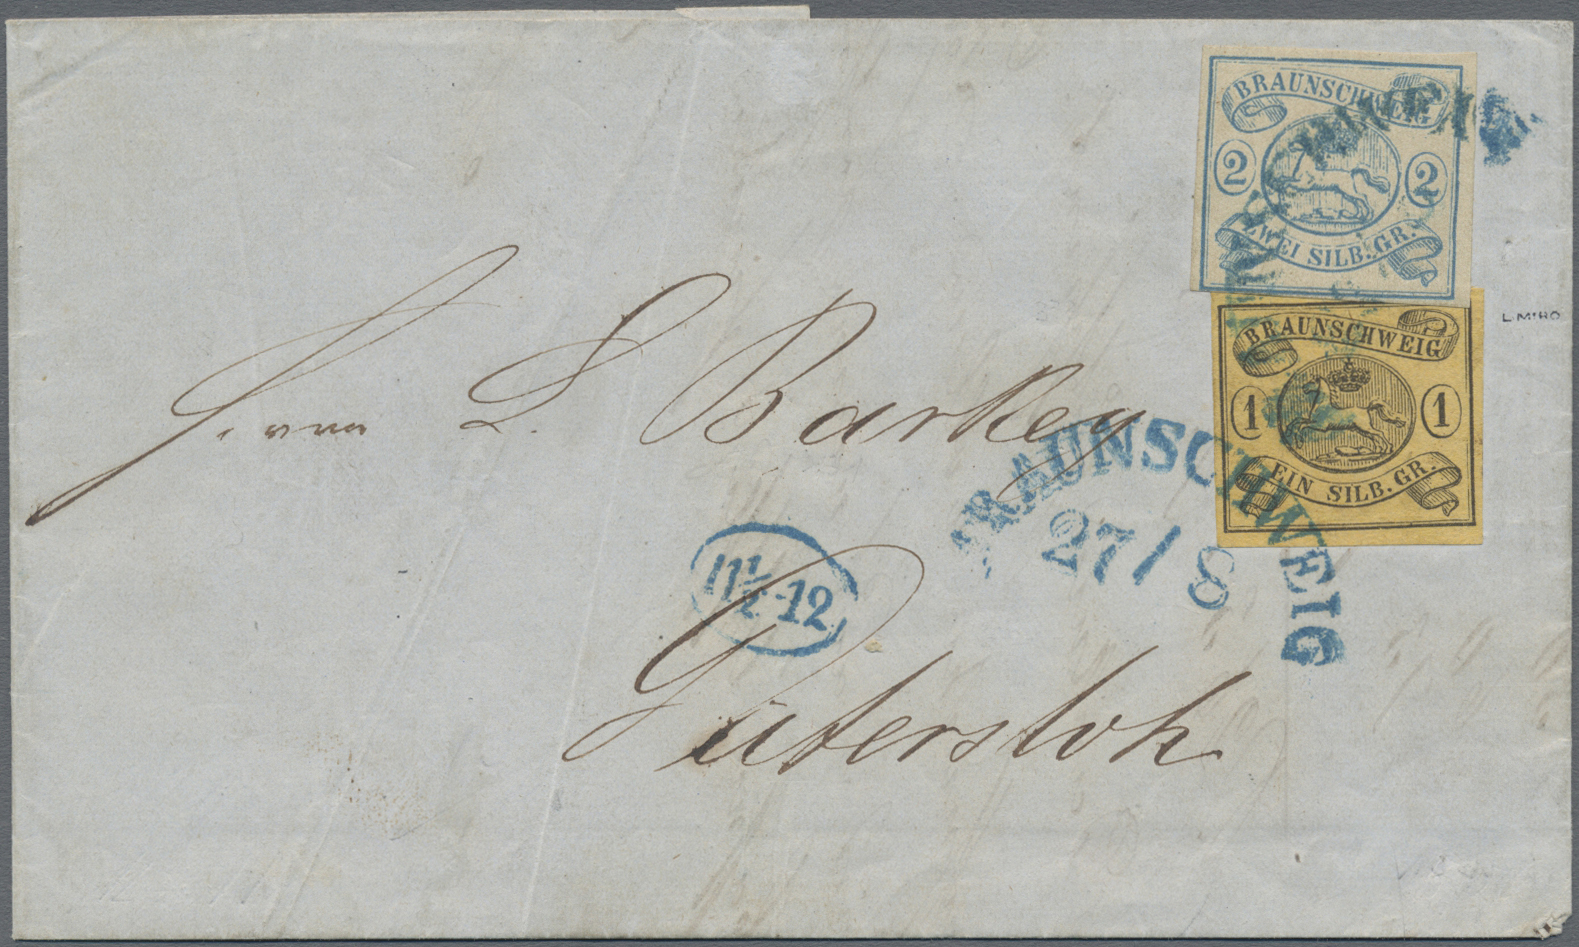 BRAUNSCHWEIG
2 2
ZWEI SILB. GR.
BRAUNSCHWEIG
1 1
EIN SILB. GR.
L. MIRO
Herrn L Barkey
BRAUNSCHWEIG
27/8
11½-12
Gütersloh